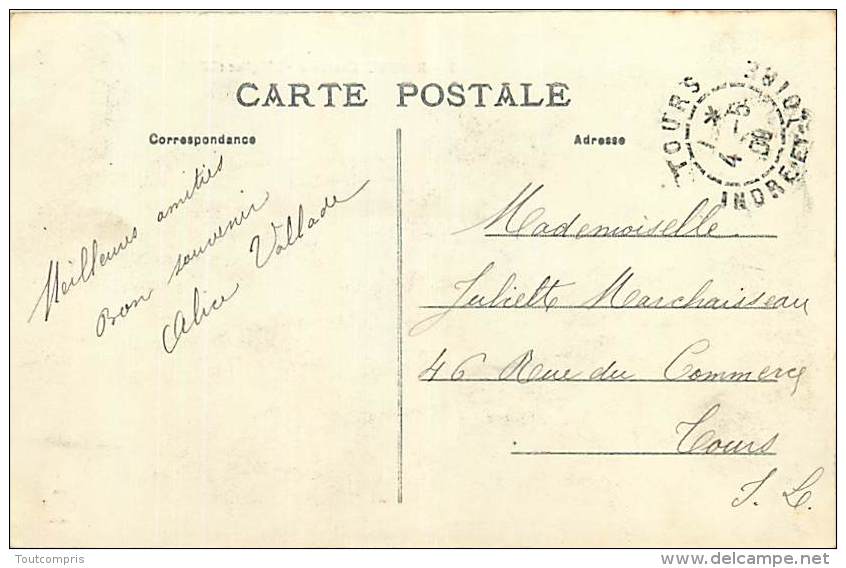 CARTE POSTALE
Correspondance
Adresse
TOURS
INDRE-ET-LOIRE
Meilleures amitiés
Bon souvenir
Alice Vallade
Mademoiselle
Juliette Marchaisseau
46 Rue du Commerce
Tours
I. L.
Toutcompris
delcampe.net